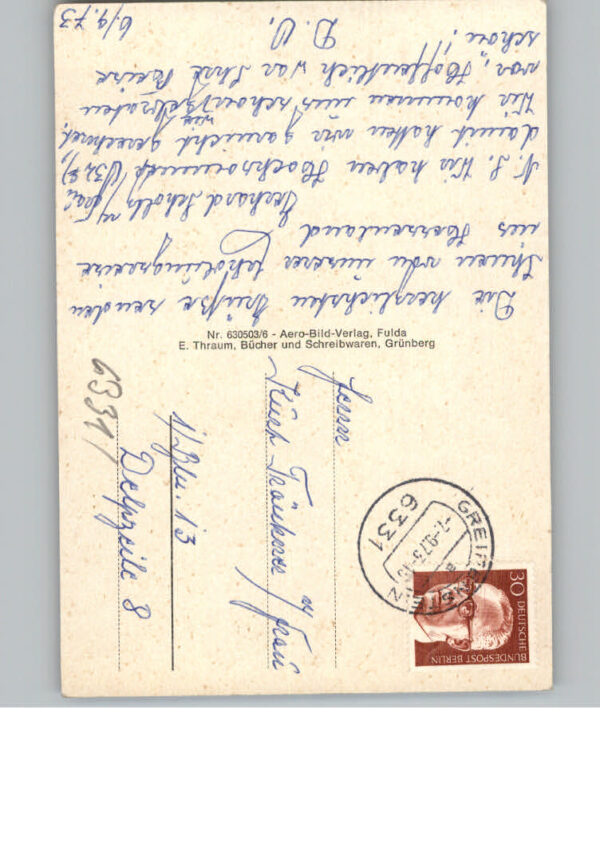 Die herzlichsten Grüße senden
Ihnen von unserer Erholungsreise
aus Hessenland
Gerhard Scholz u/Frau
N. S. Wir haben Hochsommer (32°),
damit hatten wir garnicht gerechnet,
Wir kommen uns schon wie gebraten
vor, Hoffentlich war Ihre Reise
schön!
D. O.
6/9.73
Nr. 630503/6 - Aero-Bild-Verlag, Fulda
E. Thraum, Bücher und Schreibwaren, Grünberg
Herrn
Kurt Tränkner u/Frau
1/Bln. 13
Delpzeile 8
6331
GREIFENSTEIN
-7.-9.73
6331
30
DEUTSCHE
BUNDESPOST BERLIN